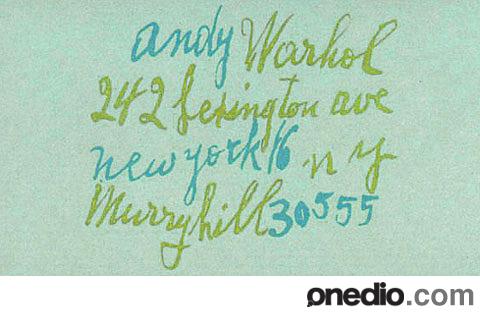 andy Warhol
242 Lexington ave
new york 16 n y
Murryhill 30555
onedio.com